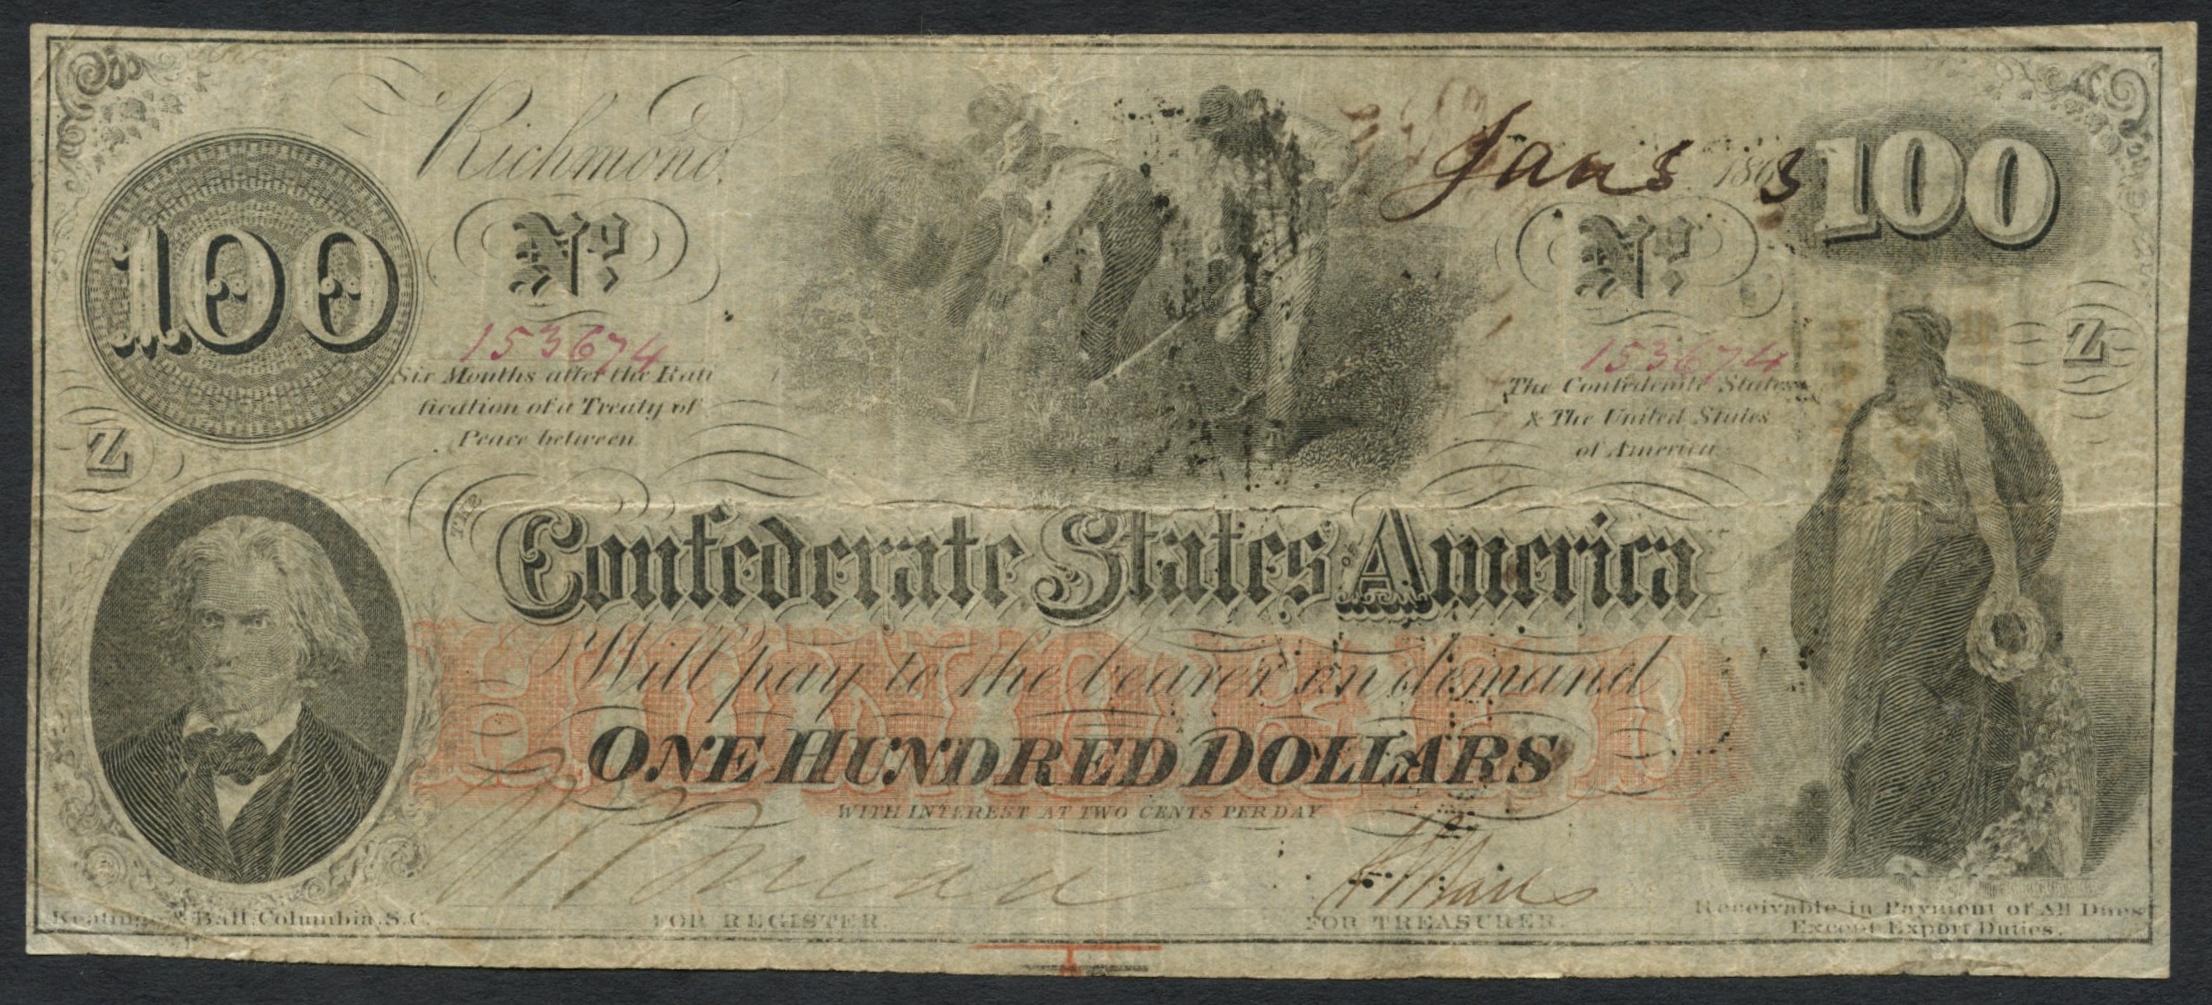 Richmond,
Jany 5 1863
100
100
No.
No.
153674
153674
Six Months after the Rati
fication of a Treaty of
Peace between
The Confederate States
& The United States
of America
Z
Z
THE
Confederate States OF America
HUNDRED
Will pay to the bearer on demand
ONE HUNDRED DOLLARS
WITH INTEREST AT TWO CENTS PER DAY
FOR REGISTER.
FOR TREASURER.
Keatinge & Ball, Columbia, S.C.
Receivable in Payment of All Dues
Except Export Duties.